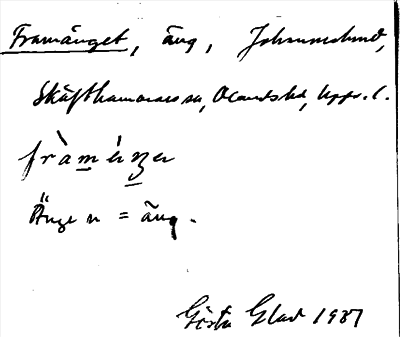 Framänget, äng, Johannelund,
Skäfthammars sn, Olands hd, Upps. l.
fràménger
Ängen = äng.
Gösta Glad 1987